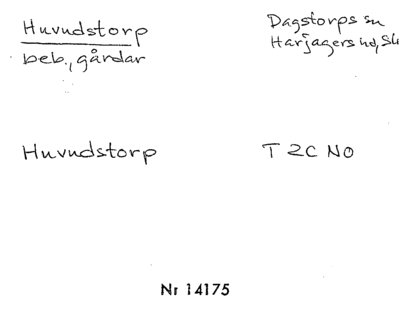 Huvudstorp
Dagstorps sn
beb., gårdar
Harjagers hd, Sk
Huvudstorp
T 2C NO
Nr 14175